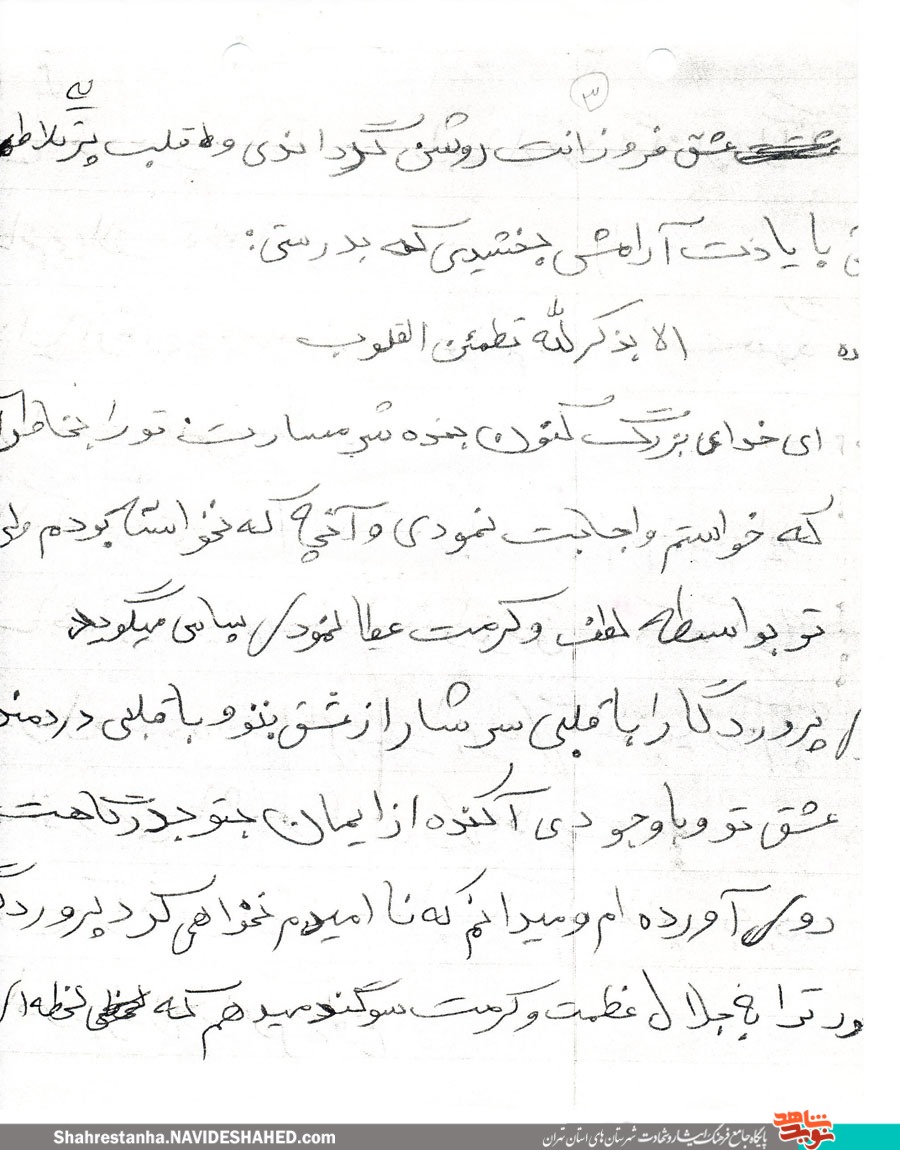 ۳
به
عشق فروزانت روشن گرداندی و قلب پرتلاطم
با یادت آرامش بخشیدی که بدرستی:
الا بذکر لله تطمئن القلوب
ده
ای خدای بزرگ کنون بنده شرمسارت تو را بخاطر
که خواستم و اجابت نمودی و آنچه که نخواسته بودم ولی
تو بواسطه لطف و کرمت عطا نمودی سپاس میگوید
پروردگارا با قلبی سرشار از عشق بتو و با قلبی دردمند
عشق تو و با وجودی آکنده از ایمان بتو بدرگاهت
روی آورده ام و میدانم که نا امیدم نخواهی کرد پروردگ
ترا به جلال عظمت و کرمت سوگند میدهم که لحظه ای
Shahrestanha.NAVIDESHAHED.com
پایگاه جامع فرهنگ ایثار و شهادت شهرستان های استان تهران
نوید شاهد